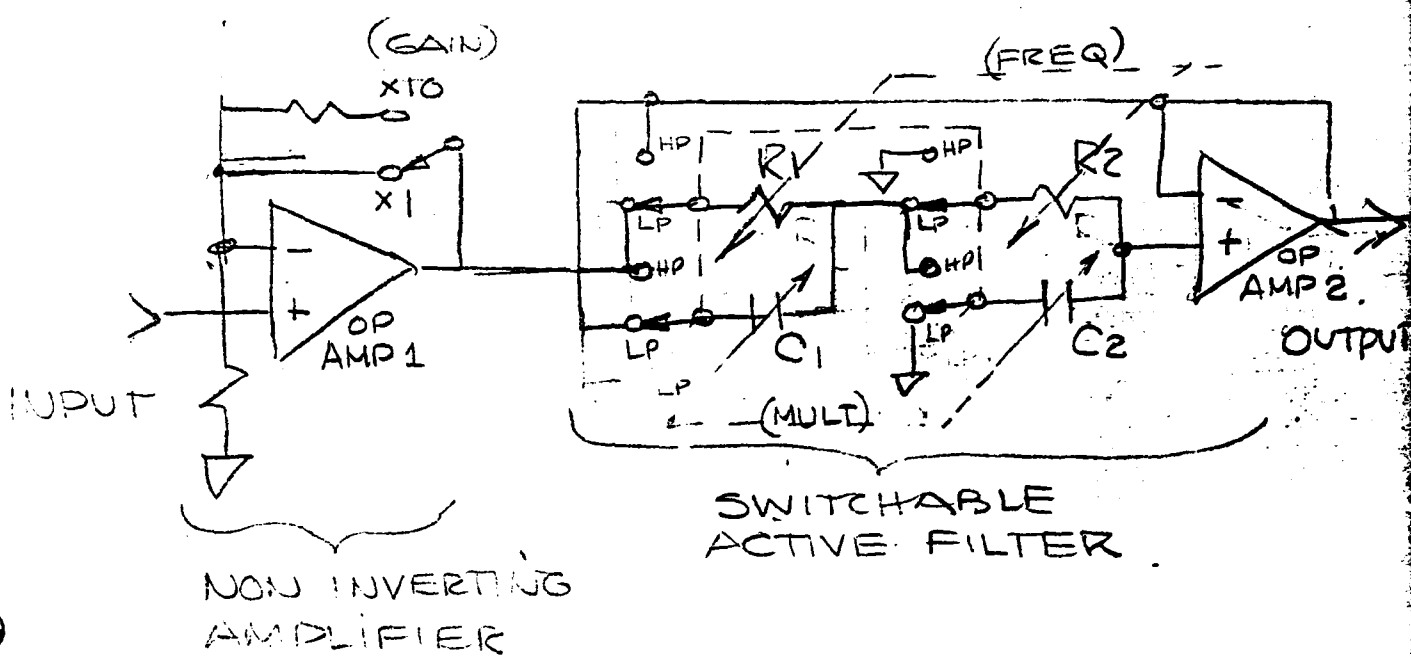 (GAIN)
X10
X1
-
+
OP
AMP 1
INPUT
NON INVERTING
AMPLIFIER
(FREQ)
HP
HP
R1
R2
LP
LP
HP
HP
LP
LP
C1
C2
LP
(MULT)
-
+
OP
AMP 2.
OUTPUT
SWITCHABLE
ACTIVE FILTER